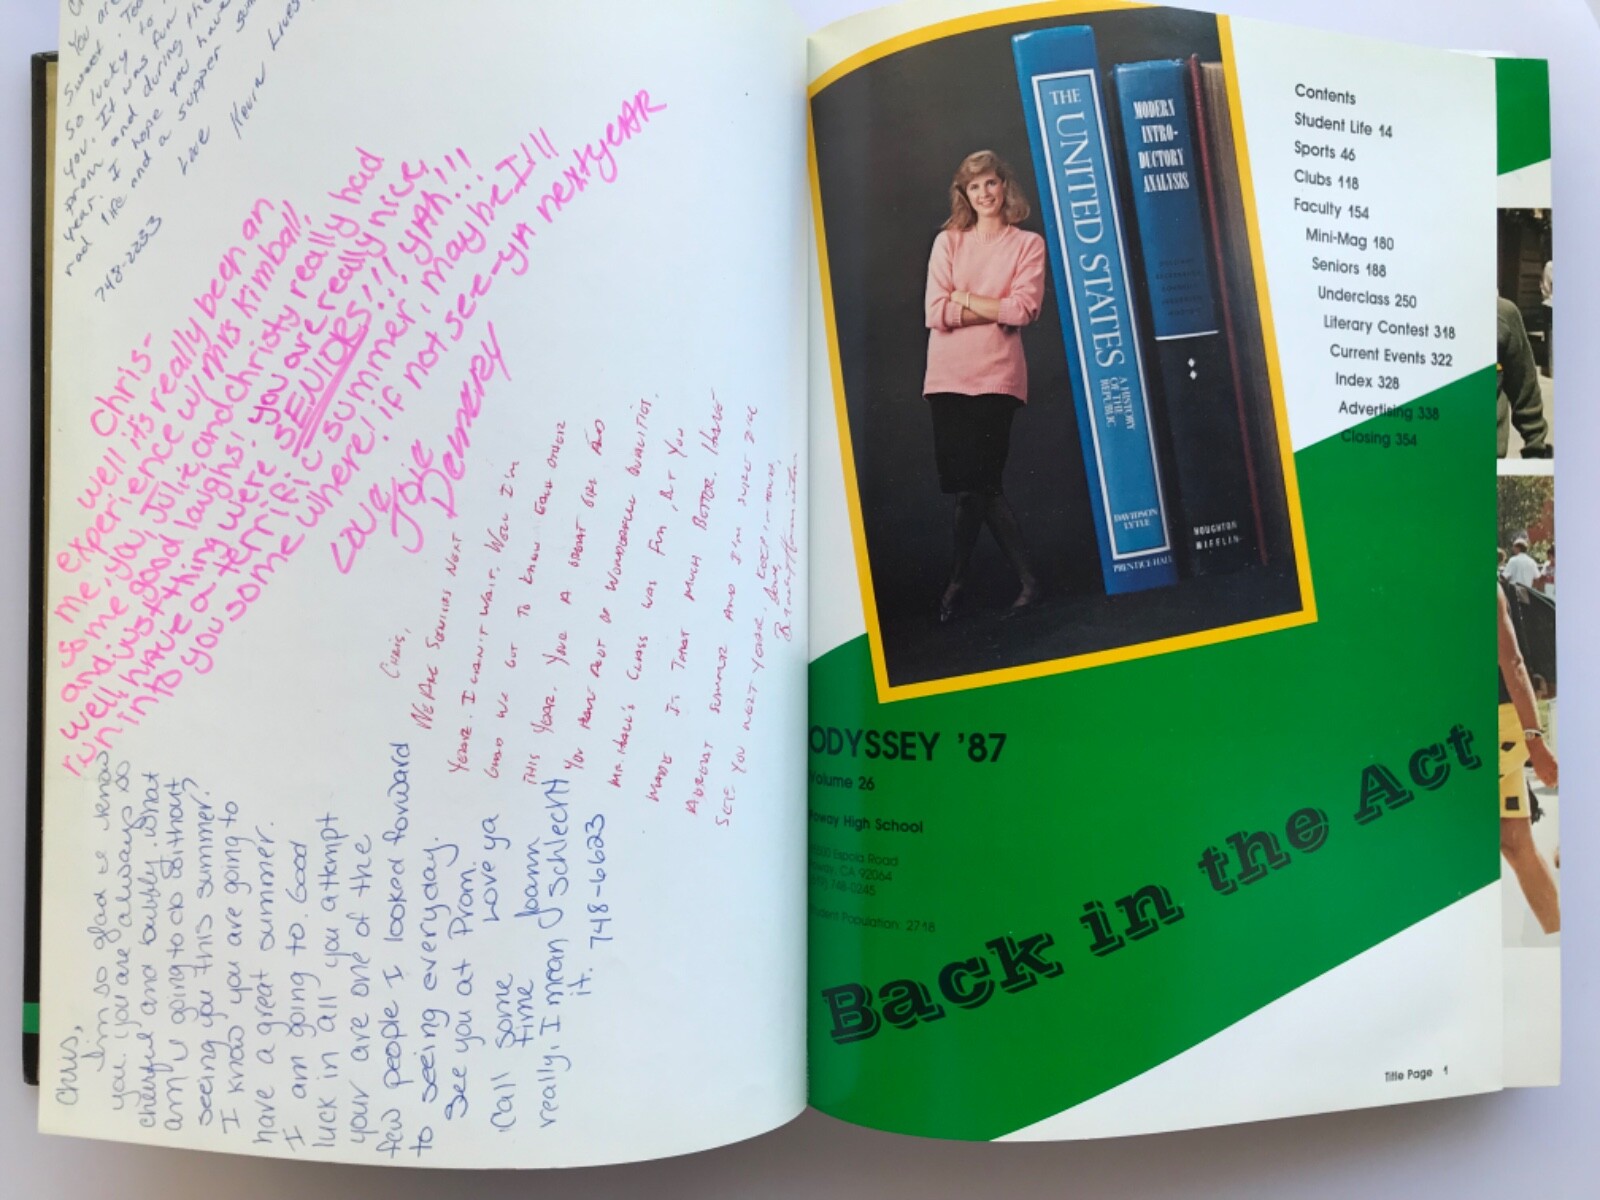 You are
Sweet. Too
So lucky to
you. It was fun
from and during the
year. I hope you have
rad life and a supper sum
Love Kevin Lives
748-2233
Chris-
well it's really been an
experience w/ Mrs Kimball,
me, you, Julie and christy really had
some good laughs! you are really nice
well, just thing were SENIORS!!! YAH!!!
have a terrific summer, maybe I'll
run into you somewhere! if not see-ya next yeAR
Love
Joie
Demerey
Chris,
We are seniors next
year. I can't wait. Well I'm
glad we got to know each other
this year. Your a great girl and
you have alot of wonderful qualities.
Mr. Hall's class was fun, but you
made it that much better. Have
a great summer and I'm sure I'll
see you next year. Keep in touch,
Love,
Chris,
I'm so glad I know
you. you are always so
cheerful and bubbly. What
am I going to do without
seeing you this summer?
I know you are going to
have a great summer.
I am going to. Good
luck in all you attempt
your are one of the
few people I looked forward
to seeing everyday.
See you at Prom.
Love ya
Joann
Schlecht
Call some
time
really, I mean
it. 748-6623
THE
UNITED STATES
A HISTORY
OF THE
REPUBLIC
DAVIDSON
LYTLE
PRENTICE-HALL
MODERN
INTRO-
DUCTORY
ANALYSIS
HOUGHTON
MIFFLIN
Contents
Student Life 14
Sports 46
Clubs 118
Faculty 154
Mini-Mag 180
Seniors 188
Underclass 250
Literary Contest 318
Current Events 322
Index 328
Advertising 338
Closing 354
ODYSSEY '87
Volume 26
Poway High School
15500 Espola Road
Poway, CA 92064
(619) 748-0245
Student Population: 2718
Back in the Act
Title Page 1